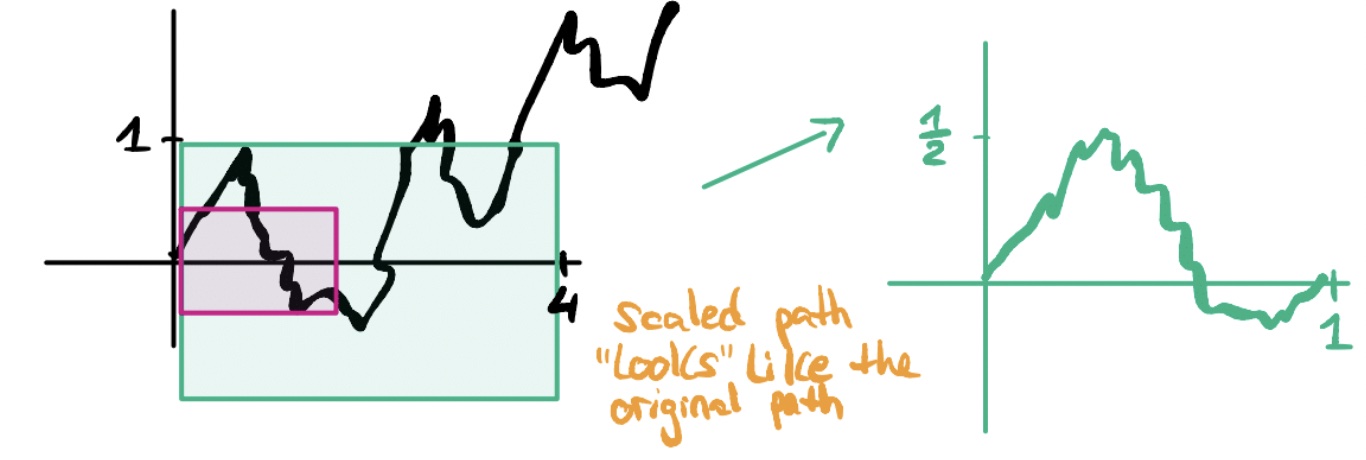 1
4
scaled path
"looks" like the
original path
1/2
1